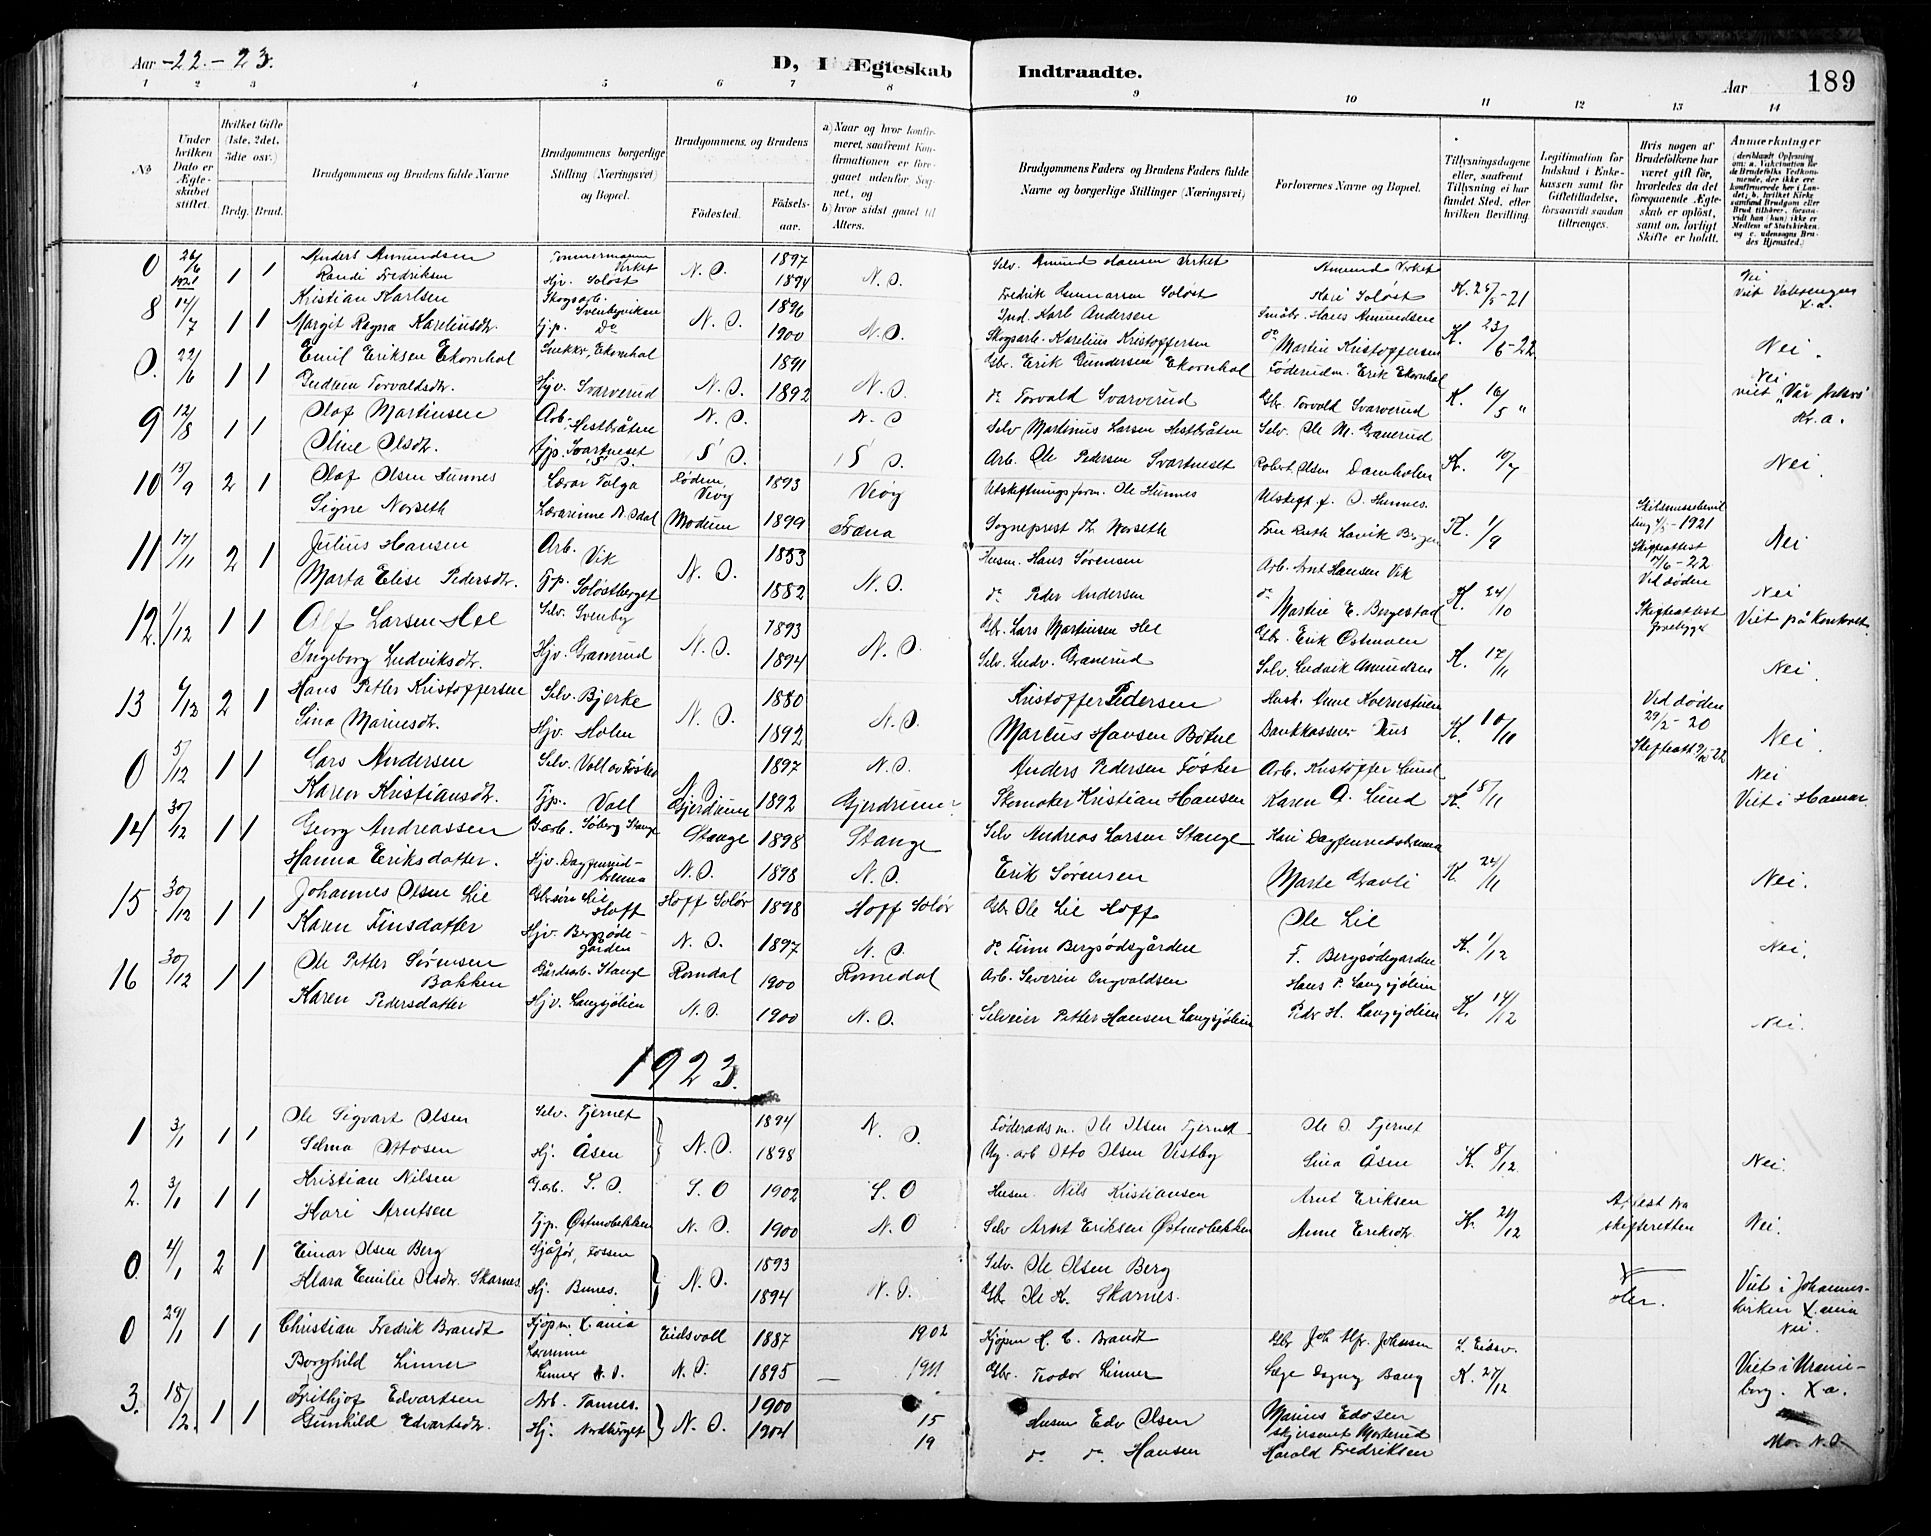 Aar -22.- 23. D, I Ægteskab Indtraadte. Aar 189
1 2 3 4 5 6 7 8 9 10 11 12 13 14
No
Under hvilken Dato er Ægteskabet stiftet.
Hvilket Gifte (1ste, 2det, 3die osv.)
Brdg. Brud.
Brudgommens og Brudens fulde Navne
Brudgommens borgerlige Stilling (Næringsvei) og Bopæl.
Brudgommens og Brudens
Födested. Födselsaar.
a) Naar og hvor konfirmeret, saafremt Konfirmationen er foregaaet udenfor Sognet, og
b) hvor sidst gaaet til Alters.
Brudgommens Faders og Brudens Faders fulde Navne og borgerlige Stillinger (Næringsvei)
Forlovernes Navne og Bopæl.
Tillysningsdagene eller, saafremt Tillysning ei har fundet Sted, efter hvilken Bevilling.
Legitimation for Indskud i Enkekassen samt for Giftetilladelse, forsaavidt saadan tiltrænges.
Hvis nogen af Brudefolkene har været gift før, hvorledes da det foregaaende Ægteskab er oplöst, samt om lovligt Skifte er holdt.
Anmærkninger
0 26/6 1921 1 1 Anders Amundsen Tømmermann Virket N. O. 1897 N. O. Selv. Amund Hansen Virket Amund Virket K. 28/5-21 Nei
Randi Fredriksen Hjv. Soløst 1894 Fredrik Gunnarsen Soløst Kari Soløst Viet Vaterengen X.a.
8 14/7 1 1 Kristian Karlsen Skogsarb. Svenbyviken N. O. 1896 N. O. Ind. Karl Andersen Småbr. Hans Amundsen K. 23/6-22
Margit Ragna Kareliusdtr. Hjp. Do 1900 Skogsarb. Karelius Kristoffersen do Martin Kristoffersen Nei.
0. 22/6 1 1 Emil Eriksen Ekornhol Snekker, Ekornhol 1891 Gbr. Erik Gundersen Ekornhol Föderådm. Erik Ekornhol Nei
Gudrun Torvaldsdtr. Hjv. Svarverud N. O. 1892 N. O. do Torvald Svarverud Gbr Torvald Svarverud K. 16/5 " viet "Vår frelsers" Kr. a.
9 12/8 1 1 Olaf Martinsen Arb. Hestbråten N. O. N. O Selv Martinus Larsen Hestbråten Selv. Ole M. Granerud
Oline Olsdtr. Hjp. Svartneset S. O. S O. S O. Arb. Ole Pedersen Svartneset Robert Olsen Damholen K. 10/7 Nei.
10 15/9 2 1 Olaf Olsen Hunnes Lærer Tolga Rödven, Veöy 1893 Veöy Utskiftningsform. Ole Hunnes Utskift. f. O. Hunnes. Skilsmissebevilling 4/5-1921
Signe Norseth Lærerinne N. Odal Modum 1899 Fræna Sogneprest Th. Norseth Fru Ruth Lavik Bergen K. 1/9 Nei
11 17/11 2 1 Julius Hansen Arb. Vik N. O. 1853 N. O. Husm. Hans Sørensen Arb. Arnt Hansen Vik Skifteattest 7/6-22 Ved døden
Marta Elise Pedersdtr. Hjp. Soløstberget 1882 do Peder Andersen do Martin E. Bergestad K. 24/10 Nei
12. 1/12 1 1 Alf Larsen Hel Selv. Svenby N. O. 1893 N. O. Gbr. Lars Martinsen Hel Gbr. Erik Østmoen Skifteattest forelegges Viet på Kontoret.
Ingeborg Ludviksdtr. Hjv. Granerud 1894 Selv. Ludv. Granerud Selv. Ludvik Amundsen K. 17/11 Nei.
13 6/12 2 1 Hans Petter Kristoffersen Selv. Bjerke N. O. 1880 N. O. Kristoffer Pedersen Husk. Anne Kvernstuen Ved døden 29/2-20
Lina Mariusdtr. Hjv. Holen 1892 Marius Hansen Bøhne Bankkasserer K. 10/11 Nei.
0 5/12 1 1 Lars Andersen Selv. Voll av Fösker N. O. 1897 N. O. Anders Pedersen Fösker Arb. Kristoffer Lund Nei
Karen Kristiansdtr. Hjp. Voll Gjerdrum 1892 Gjerdrum Skomaker Kristian Hansen Karen O. Lund K. 18/11 Viet i Hamar
14 30/12 1 1 Georg Andreassen G.arb. Söberg Stange Stange 1898 Stange Selv Andreas Larsen Stange Kari Dagfinrudshemma
Hanna Eriksdatter. Hjv. Dagfinrudhemma N. O. 1898 N. O. Erik Sørensen Marte Gravli K. 24/11 Nei.
15 30/12 1 1 Johannes Olsen Lie Gbrsøn Lie Hoff Hoff Solør 1898 Hoff Solør Gbr Ole Lie Hoff Ole Lie
Karen Finsdatter Hjv. Bergsødegården N. O. 1897 N. O. do Finn Bergsødsgården F. Bergsødegarden K. 1/12 Nei.
16 30/12 1 1 Ole Petter Sørensen Bakken Gårdsarb. Stange Romdal 1900 Romedal Arb. Severin Ingvaldsen Hans P. Langsjølien
Karen Pedersdatter Hjv. Langsjølien N. O. 1900 N. O. Selveier Petter Hansen Langsjølien Peder H. Langsjølien K. 14/12 Nei.
1923.
1 3/1 1 1 Ole Sigvart Olsen Selv. Tjernet N. O. 1894 N. O. Föderådsm. Ole Olsen Tjernet Ole O. Tjernet
Selma Ottosen Hj. Åsen 1898 Arb Otto Olsen Vestby Lina Åsen K. 8/12 Nei.
2. 3/1 1 1 Kristian Nilsen G.arb. S. O. S. O 1902 S. O Husm. Nils Kristiansen Arnt Eriksen Attest fra
Kari Arntsen Hjp. Østmobekken N. O. 1900 N. O Selv Arnt Eriksen Østmobekken Anne Eriksdtr. K. 21/12 skifteretten Nei.
0. 4/1 2 1 Einar Olsen Berg Sjåför, Fossen N. O. 1893 Selv. Ole Olsen Berg
Klara Emilie Olsdtr. Skarnes Hj. Bunes. 1894 N. O. Gbr Ole K. Skarnes. Viet i Johanneskirken X.ania
0 29/1 1 1 Christian Fredrik Brandt Kjöpm. X.ania Eidsvoll 1887 1902 Kjöpm H. C. Brandt Gbr Joh Alfr. Johansen L. Eidsv. Nei.
Borghild Linner Lærerinne Linner N. O. N. O. 1895 — 1911 Gbr. Teodor Linner Læge Dagny Bang K. 27/12 Viet i Uranienborg. X.a.
3. 18/2. 1 1 Frithjof Edvartsen Arb. Tannes. N. O. 1900 15 Husm Edv Olsen Marius Edvsen
Gunhild Edvartsdtr. Hj. Nordberget 1904 19 do do Hansen Harald Fredriksen Mo. N. O.